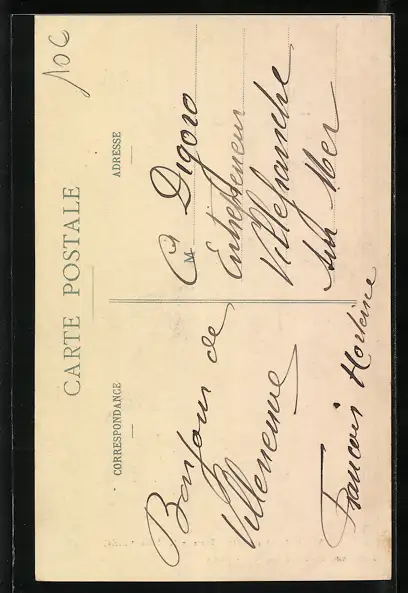 10C
CARTE POSTALE
CORRESPONDANCE
ADRESSE
Bonjour de
Villeneuve
François
M
Digoro
Entrepreneur
Villefranche
sur Mer